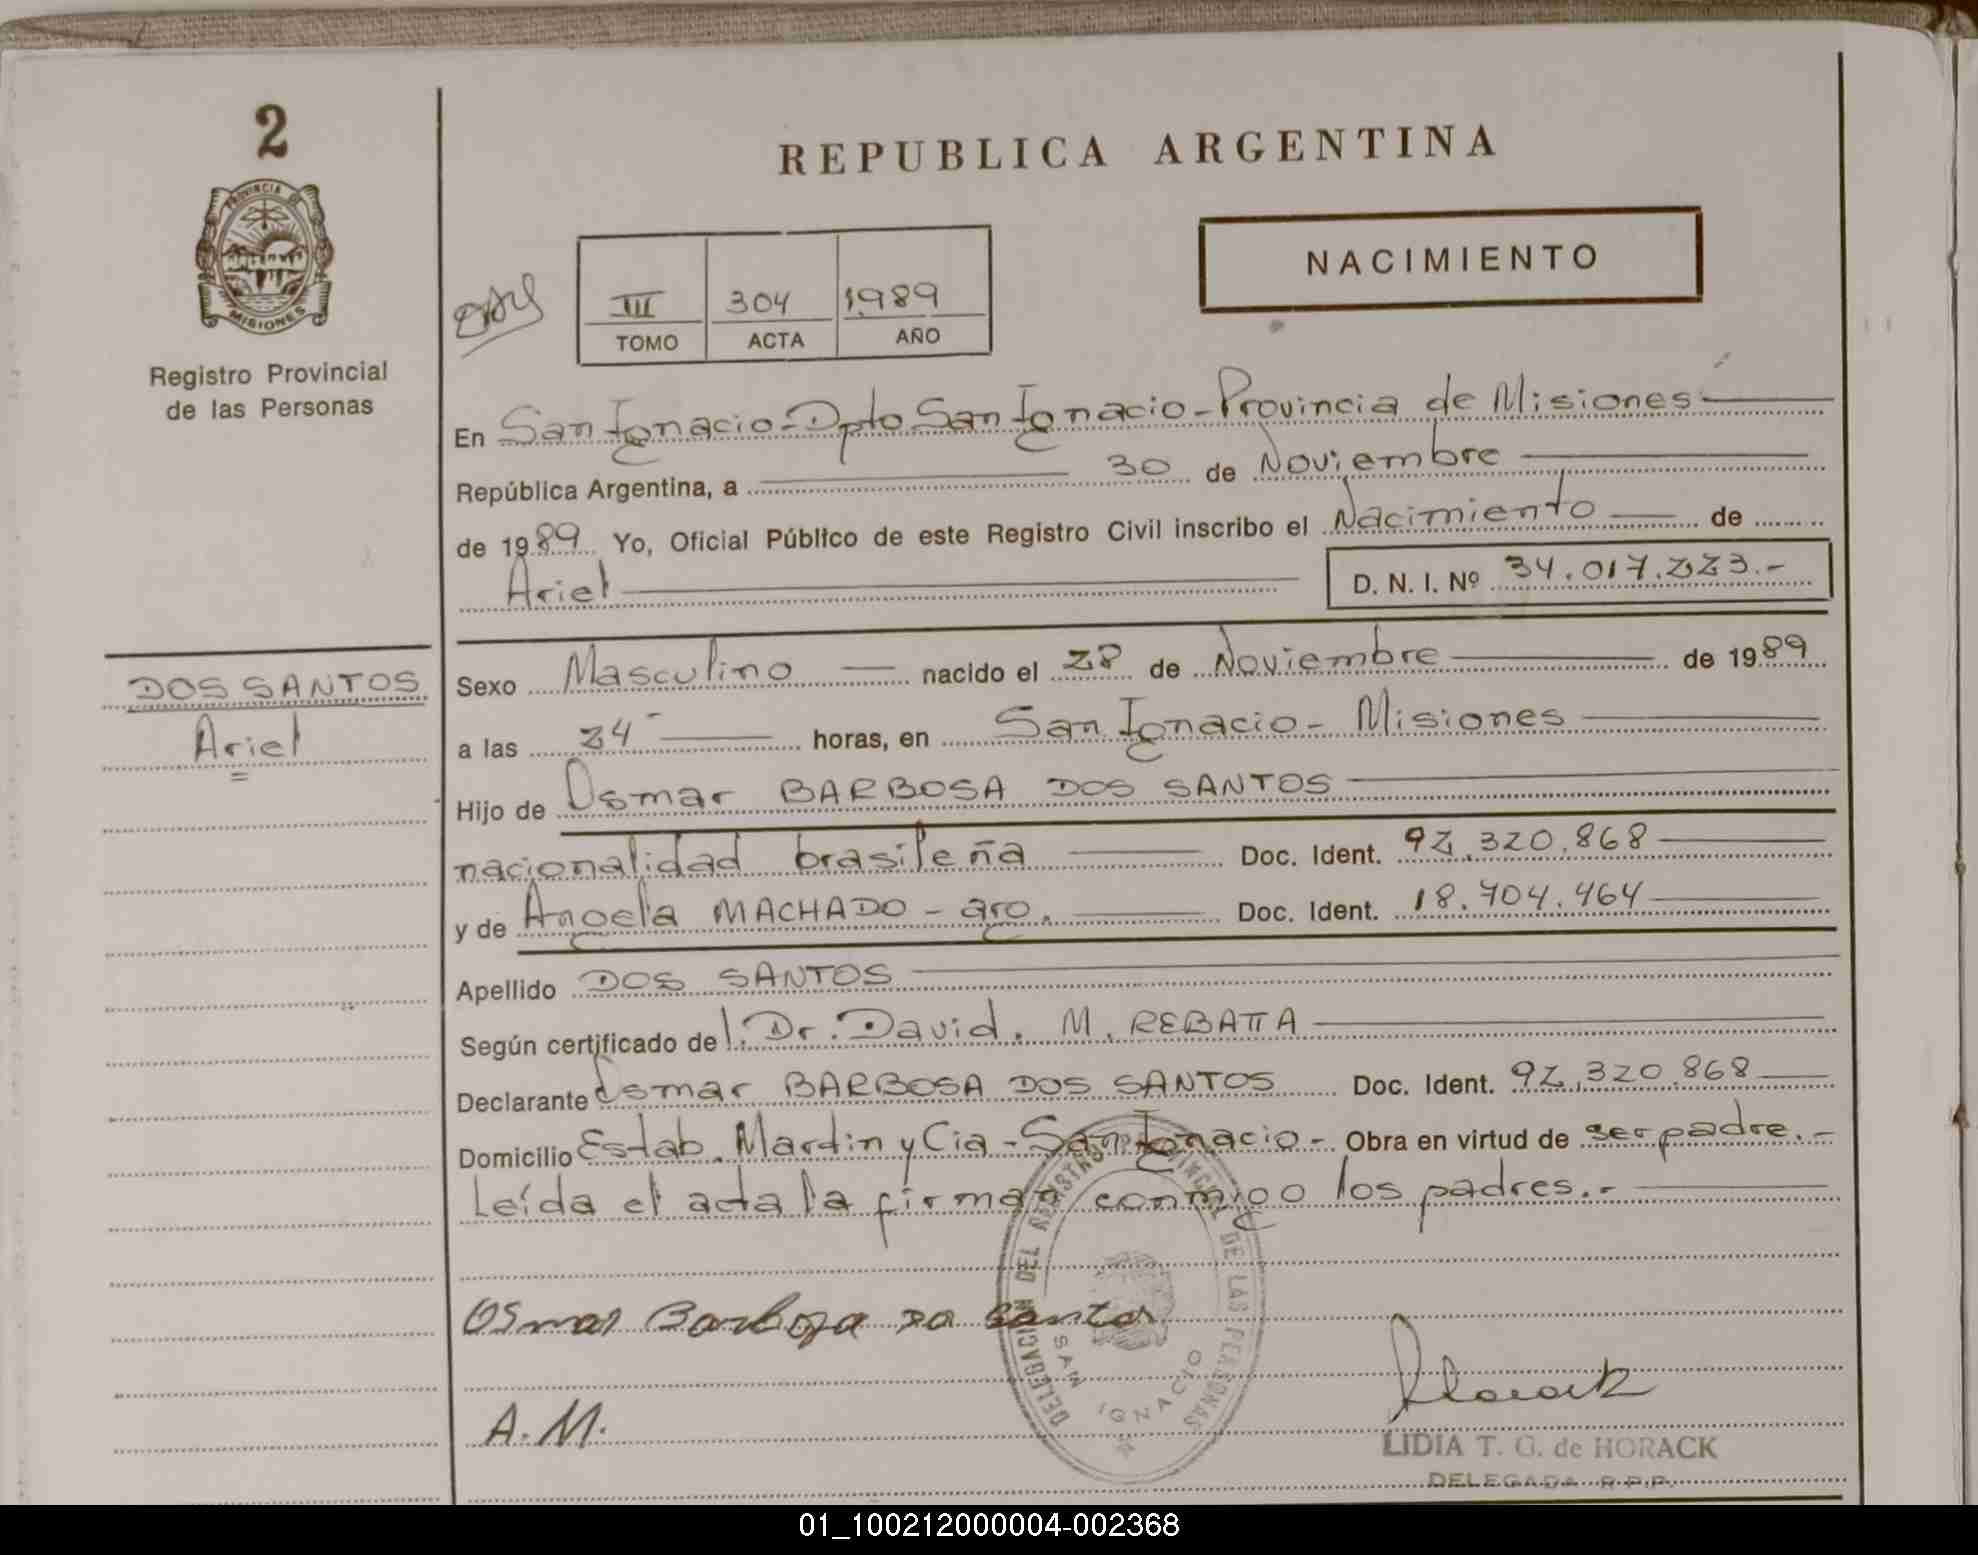 2
PROVINCIA DE
MISIONES
Registro Provincial
de las Personas
REPUBLICA ARGENTINA
NACIMIENTO
III 304 1989
TOMO ACTA AÑO
En San Ignacio-Dpto San Ignacio-Provincia de Misiones
República Argentina, a 30 de Noviembre
de 1989 Yo, Oficial Público de este Registro Civil inscribo el Nacimiento de
Ariel D. N. I. Nº 34.017.223.-
DOS SANTOS
Ariel
Sexo Masculino nacido el 28 de Noviembre de 1989
a las 24 horas, en San Ignacio - Misiones
Hijo de Osmar BARBOSA DOS SANTOS
nacionalidad brasileña Doc. Ident. 92.320.868
y de Angela MACHADO - arg. Doc. Ident. 18.704.464
Apellido DOS SANTOS
Según certificado de l. Dr. David. M. REBATTA
Declarante Osmar BARBOSA DOS SANTOS Doc. Ident. 92.320.868
Domicilio Estab. Martin y Cia - San Ignacio.- Obra en virtud de ser padre.-
Leída el acta la firman conmigo los padres.-
DELEGACION DEL REGISTRO PROVINCIAL DE LAS PERSONAS
SAN IGNACIO
Osmar Barboza do Santos
A.M.
Horack
LIDIA T. G. de HORACK
DELEGADA R.P.P.
01_100212000004-002368